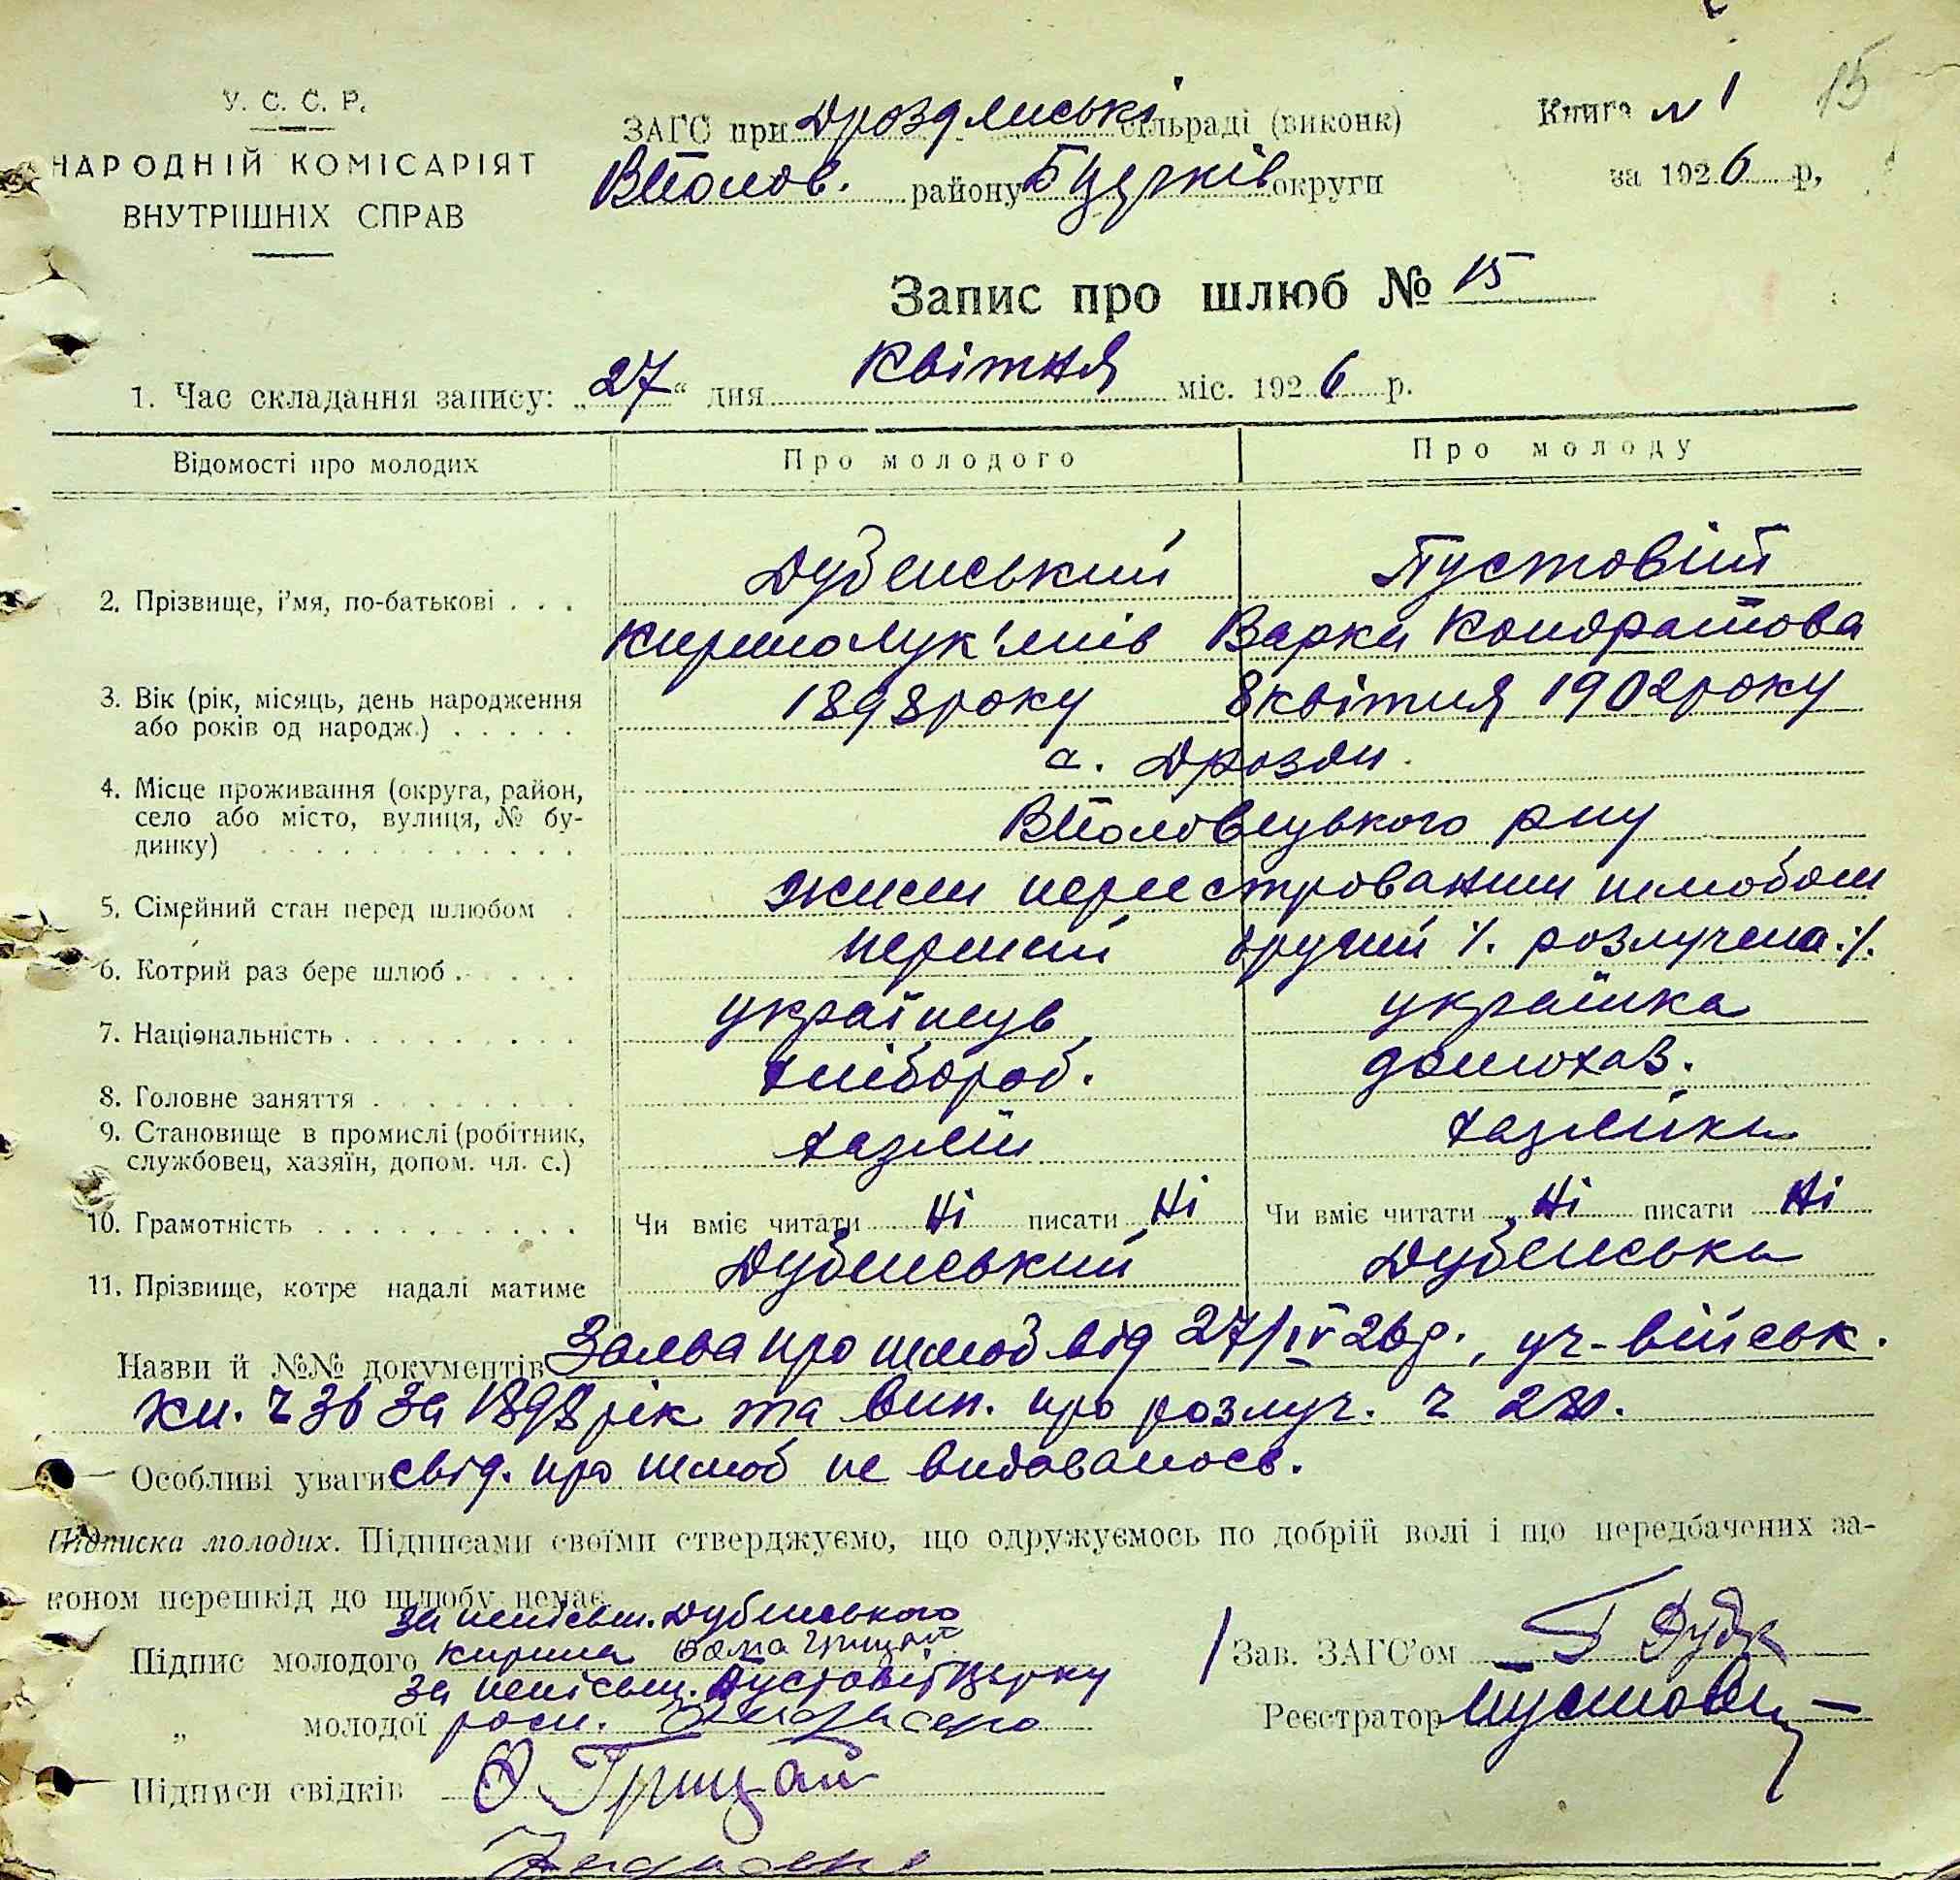 15
У. С. С. Р.
НАРОДНІЙ КОМІСАРІЯТ
ВНУТРІШНІХ СПРАВ
ЗАГС при Дроздянські сільраді (виконк)
ВПолов. району БЦерків округи
Книга № 1
за 1926 р,
Запис про шлюб № 15
1. Час складання запису: „27“ дня Квітня міс. 1926 р.
Відомості про молодих Про молодого Про молоду
2. Прізвище, і'мя, по-батькові . . . Дубенський Пустовіт
Кирило Лук'янів Варка Кондратова
3. Вік (рік, місяць, день народження
або років од народж.) . . . . . 1898 року 8 квітня 1902 року
4. Місце проживання (округа, район,
село або місто, вулиця, № бу-
динку) . . . . . . . . . . . . с. Дрозди.
ВПоловецького р-ну
5. Сімейний стан перед шлюбом . жили шлюбом
6. Котрий раз бере шлюб . . . . . перший другий ·/. розлучена ·/.
7. Національність . . . . . . . . . українець українка
8. Головне заняття . . . . . . . . хлібороб. домохаз.
9. Становище в промислі (робітник,
службовец, хазяїн, допом. чл. с.) хазяїн хазяйка
10. Грамотність . . . . . . . . . . Чи вміє читати Ні писати Ні Чи вміє читати Ні писати Ні
11. Прізвище, котре надалі матиме Дубенський Дубенська
Назви й №№ документів Заява про шлюб від 27/IV 26 р., уч-військ.
кн. ч 36 за 1898 рік та вип. про розлуч. ч
Особливі уваги свід. про шлюб не видавалось.
Підписка молодих. Підписами своїми стверджуємо, що одружуємось по добрій волі і що передбачених за-
коном перешкід до шлюбу немає
за неписьм. Дубенського
Підпис молодого Кирила Грицай
за неписьм. Пустовіт Варку
„ молодої росп.
Підписи свідків Грицай
Зав. ЗАГС'ом Г Дудк
Реєстратор Пустовіт